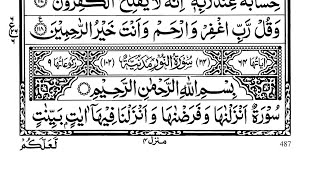 حِسَابُهٗ عِنْدَ رَبِّهٖ ؕ اِنَّهٗ لَا يُفْلِحُ الْكٰفِرُوْنَ ﴿۱۱۷﴾
وَقُلْ رَّبِّ اغْفِرْ وَارْحَمْ وَاَنْتَ خَيْرُ الرّٰحِمِيْنَ ﴿۱۱۸﴾
اٰيَاتُهَا ۶۴ (۲۴) سُوْرَةُ النُّوْرِ مَدَنِيَّةٌ (۱۰۲) رُكُوْعَاتُهَا ۹
بِسْمِ اللّٰهِ الرَّحْمٰنِ الرَّحِيْمِ
سُوْرَةٌ اَنْزَلْنٰهَا وَفَرَضْنٰهَا وَاَنْزَلْنَا فِيْهَاۤ اٰيٰتٍۭ بَيِّنٰتٍ
لَّعَلَّكُمْ منزل ۴ 487